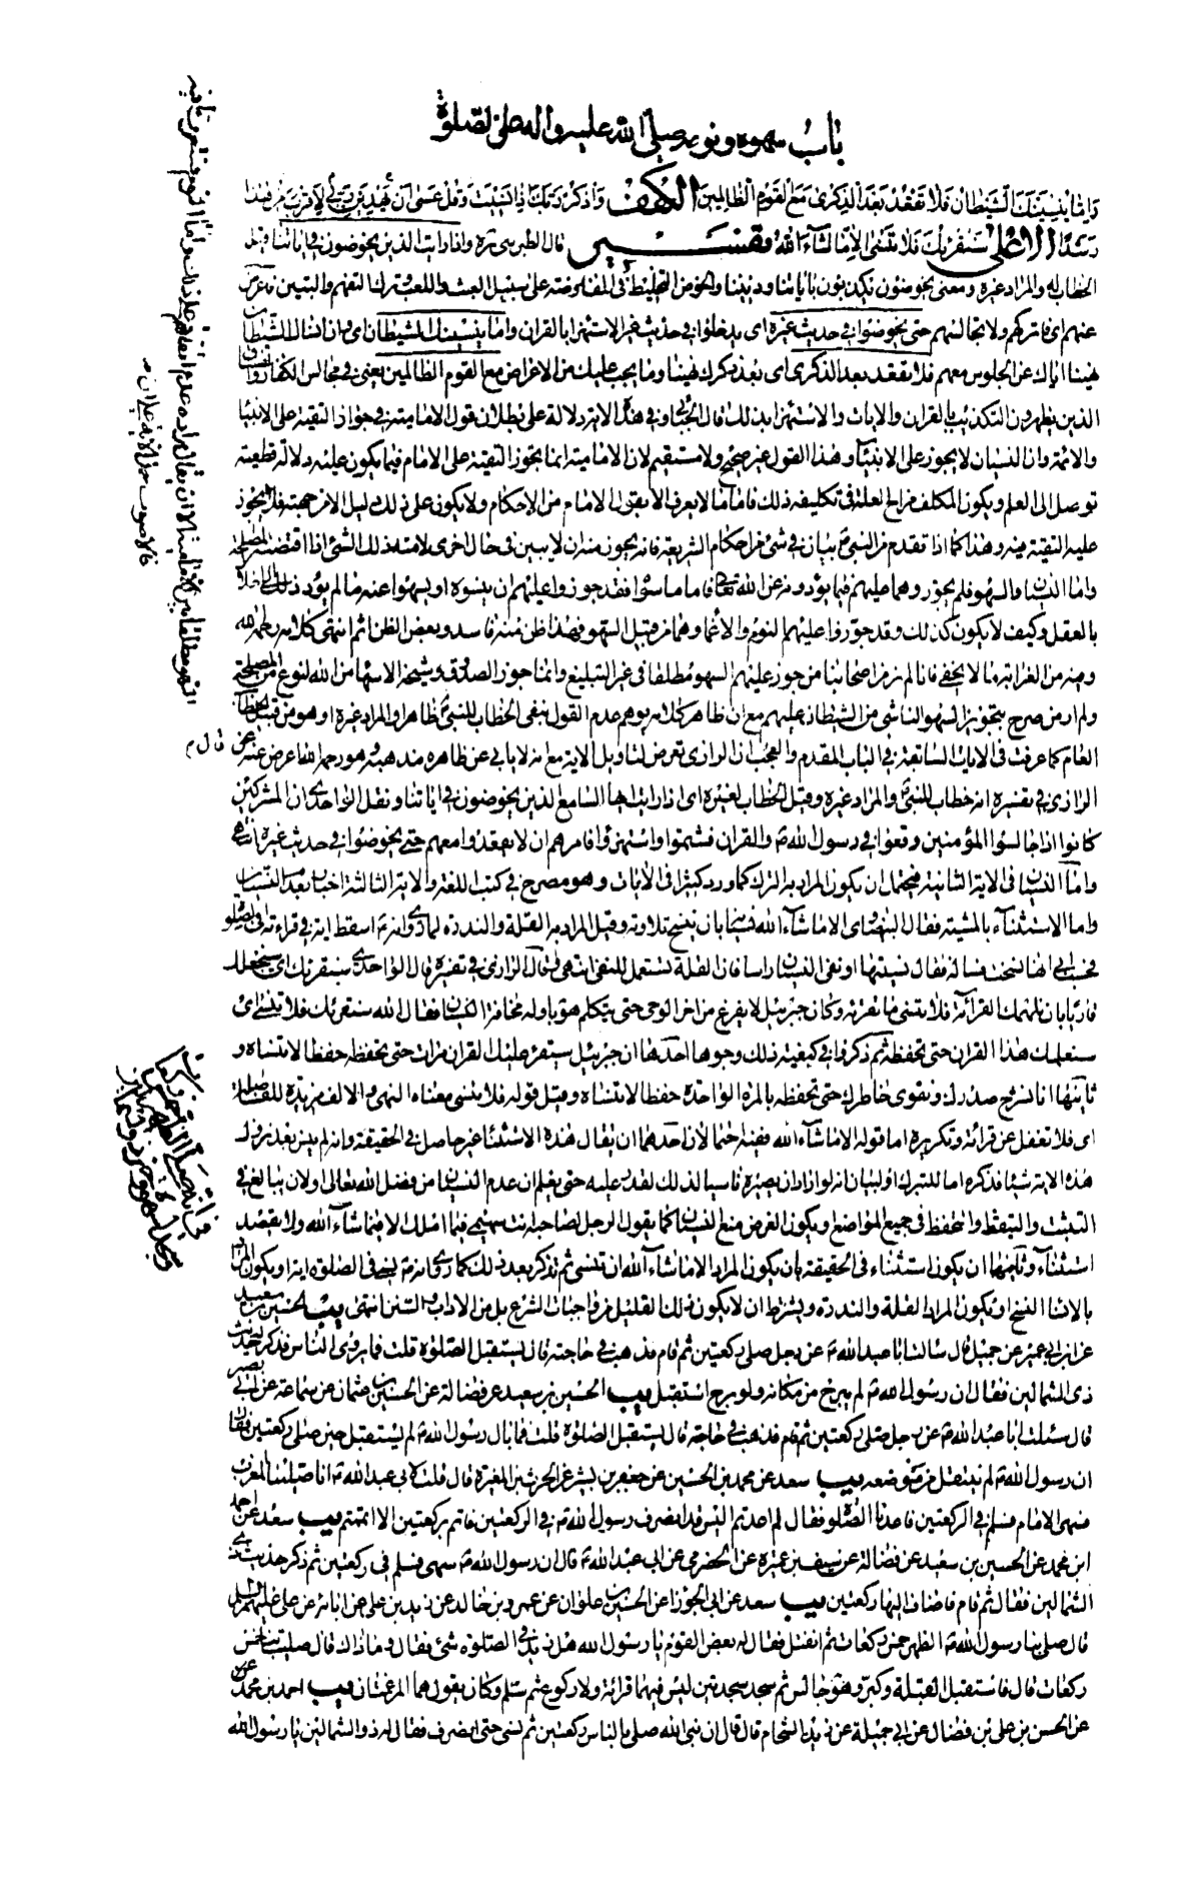 باب سهوه ونومه صلى الله عليه واله عن الصلوة
وَاِمّا يُنْسِيَنَّكَ الشَّيْطانُ فَلا تَقْعُدْ بَعْدَ الذِّكْرى مَعَ الْقَوْمِ الظّالِمينَ الكهف وَاذْكُرْ رَبَّكَ اِذا نَسيتَ وَقُلْ عَسى اَنْ يَهْدِيَنِ رَبّي لِاَقْرَبَ مِنْ هذا
رَشَدًا الاعلى سَنُقْرِئُكَ فَلا تَنْسى اِلّا ما شاءَ اللهُ تفسير قال الطبرسي ره واذا رايت الذين يخوضون في اياتنا قيل
الخطاب له والمراد غيره ومعنى يخوضون يكذبون باياتنا وديننا والخوض التخليط في المفاوضة على سبيل العبث واللعب وترك التفهم والتبيين فاعرض
عنهم اى فاتركهم ولا تجالسهم حتى يخوضوا في حديث غيره اى يدخلوا في حديث غير الاستهزاء بالقران واما ينسينك الشيطان اى وان انساك الشيطان
نهينا اياك عن الجلوس معهم فلا تقعد بعد الذكرى اى بعد ذكرك نهينا وما يجب عليك من الاعراض مع القوم الظالمين يعني في مجالس الكفار والفساق
الذين يظهرون التكذيب بالقران والايات والاستهزاء بذلك قال الجبائي وفي هذه الاية دلالة على بطلان قول الامامية في جواز التقية على الانبياء
والائمة وان النسيان لا يجوز على الانبياء وهذا القول غير صحيح ولا مستقيم لان الامامية انما يجوز التقية على الامام فيما يكون عليه دلالة قطعية
توصل الى العلم ويكون المكلف مزاح العلة في تكليفه ذلك فاما ما لا يعرف الا بقول الامام من الاحكام ولا يكون على ذلك دليل الا من جهته فلا يجوز
عليه التقية فيه وهذا كما اذا تقدم من النبي ص بيان في شئ من احكام الشريعة فانه يجوز منه ان لا يبين في حال اخرى لامته ذلك الشئ اذا اقتضته المصلحة
واما النسيان والسهو فلم يجوزوهما عليهم فيما يؤدونه عن الله تعالى فاما ما سواه فقد جوزوا عليهم ان ينسوه او يسهوا عنه ما لم يؤد ذلك الى اخلال
بالعقل وكيف لا يكون كذلك وقد جوزوا عليهم النوم والاغماء وهما من قبيل السهو فهذا ظن منه فاسد وبعض الظن اثم انتهى كلامه رحمه الله
وفيه من الغرابة ما لا يخفى فانا لم نر من اصحابنا من جوز عليهم السهو مطلقا في غير التبليغ وانما جوز الصدوق وشيخه الاسهاء من الله لنوع من المصلحة
ولم ار من صرح بتجويز السهو الناشي من الشيطان عليهم مع ان ظاهر كلامه يوهم عدم القول بنفي الخطاب للنبي ص ظاهرا والمراد غيره او هو من قبيل الخطاب
العام كما عرفت في الايات السابقة في الباب المقدم والعجب ان الرازي تعرض لتاويل الاية مع انه لا يابى عن ظاهره مذهبه وهو رحمه الله اعرض عنه قال
الرازي في تفسيره انه خطاب للنبي ص والمراد غيره وقيل الخطاب لغيره اى اذا رايت ايها السامع الذين يخوضون في اياتنا ونقل الواحدي ان المشركين
كانوا اذا جالسوا المؤمنين وقعوا في رسول الله ص والقران فشتموا واستهزؤا فامرهم ان لا يقعدوا معهم حتى يخوضوا في حديث غيره انتهى
واما النسيان في الاية الثانية فيحتمل ان يكون المراد به الترك كما ورد كثيرا في الايات وهو مصرح في كتب اللغة والاية الثالثة اخبار بعدم النسيان
واما الاستثناء بالمشية فقال البيضاوي الا ما شاء الله نسيانه بان ينسخ تلاوته وقيل المراد به القلة والندرة لما روي انه ص اسقط اية في قراءته في الصلوة
فحسب ابي انها نسخت فساله فقال نسيتها او نفي النسيان راسا فان القلة تستعمل للنفي انتهى قال الرازي في تفسيره قال الواحدي سنقرئك اى سنجعلك
قاريا بان نلهمك القراءة فلا تنسى ما تقرؤه وكان جبرئيل لا يفرغ من اخر الوحي حتى يتكلم هو باوله مخافة النسيان فقال الله سنقرئك فلا تنسى اى
سنعلمك هذا القران حتى تحفظه ثم ذكروا في كيفية ذلك وجوها احدها ان جبرئيل سيقرء عليك القران مرات حتى تحفظه حفظا لا تنساه و
ثانيها انا نشرح صدرك ونقوى خاطرك حتى تحفظه بالمرة الواحدة حفظا لا تنساه وقيل قوله فلا تنسى معناه النهي والالف مزيدة للفاصلة
اى فلا تغفل عن قراءته وتكريره اما قوله الا ما شاء الله ففيه احتمالان احدهما ان يقال هذه الاستثناء غير حاصل في الحقيقة وانه لم ينس بعد نزول
هذه الاية شيئا فذكره اما للتبرك او لبيان انه لو اراد ان يصيره ناسيا لذلك لقدر عليه حتى يعلم ان عدم النسيان من فضل الله تعالى ولان يبالغ في
التثبت والتيقظ والتحفظ في جميع المواضع او يكون الغرض منع النسيان كما يقول الرجل لصاحبه انت سهيمي فيما املك الا فيما شاء الله ولا يقصد
استثناء وثانيهما ان يكون استثناء في الحقيقة بان يكون المراد الا ما شاء الله ان تنسى ثم تذكر بعد ذلك كما روي انه ص نسي في الصلوة اية او يكون المراد
بالانساء النسخ او يكون المراد القلة والندرة ويشترط ان لا يكون ذلك القليل من واجبات الشرع بل من الاداب والسنن انتهى يب الحسين بن سعيد
عن ابن ابي عمير عن جميل قال سالت ابا عبد الله ع عن رجل صلى ركعتين ثم قام فذهب في حاجته قال يستقبل الصلوة قلت فما يروى الناس فذكر حديث
ذي الشمالين فقال ان رسول الله ص لم يبرح من مكانه ولو برح استقبل يب الحسين بن سعيد عن فضالة عن الحسين بن عثمان عن سماعة عن ابي بصير
قال سئلت ابا عبد الله ع عن رجل صلى ركعتين ثم قام فذهب في حاجته قال يستقبل الصلوة قلت فما بال رسول الله ص لم يستقبل حين صلى ركعتين فقال
ان رسول الله ص لم ينتقل من موضعه يب سعد عن محمد بن الحسين عن جعفر بن بشير عن الحرث بن المغيرة قال قلت لابي عبد الله ع انا صلينا المغرب
فسهى الامام فسلم في الركعتين فاعدنا الصلوة فقال لم اعدتم اليس قد انصرف رسول الله ص في الركعتين فاتم بركعتين الا اتممتم يب سعد عن احمد
ابن محمد عن الحسين بن سعيد عن فضالة عن سيف بن عميرة عن الحضرمي عن ابي عبد الله ع قال ان رسول الله ص سهى فسلم في ركعتين ثم ذكر حديث ذي
الشمالين فقال ثم قام فاضاف اليها ركعتين يب سعد عن ابي الجوزاء عن الحسين بن علوان عن عمرو بن خالد عن زيد بن علي عن ابائه عن علي عليهم السلم
قال صلى بنا رسول الله ص الظهر خمس ركعات ثم انفتل فقال له بعض القوم يا رسول الله هل زيد في الصلوة شئ فقال وما ذاك قال صليت بنا خمس
ركعات قال فاستقبل القبلة وكبر وهو جالس ثم سجد سجدتين ليس فيهما قراءة ولا ركوع ثم سلم وكان يقول هما المرغمتان يب احمد بن محمد عن
عن الحسن بن علي بن فضال عن ابي جميلة عن زيد الشحام قال قال ان نبي الله صلى بالناس ركعتين ثم نسي حتى انصرف فقال له ذو الشمالين يا رسول الله